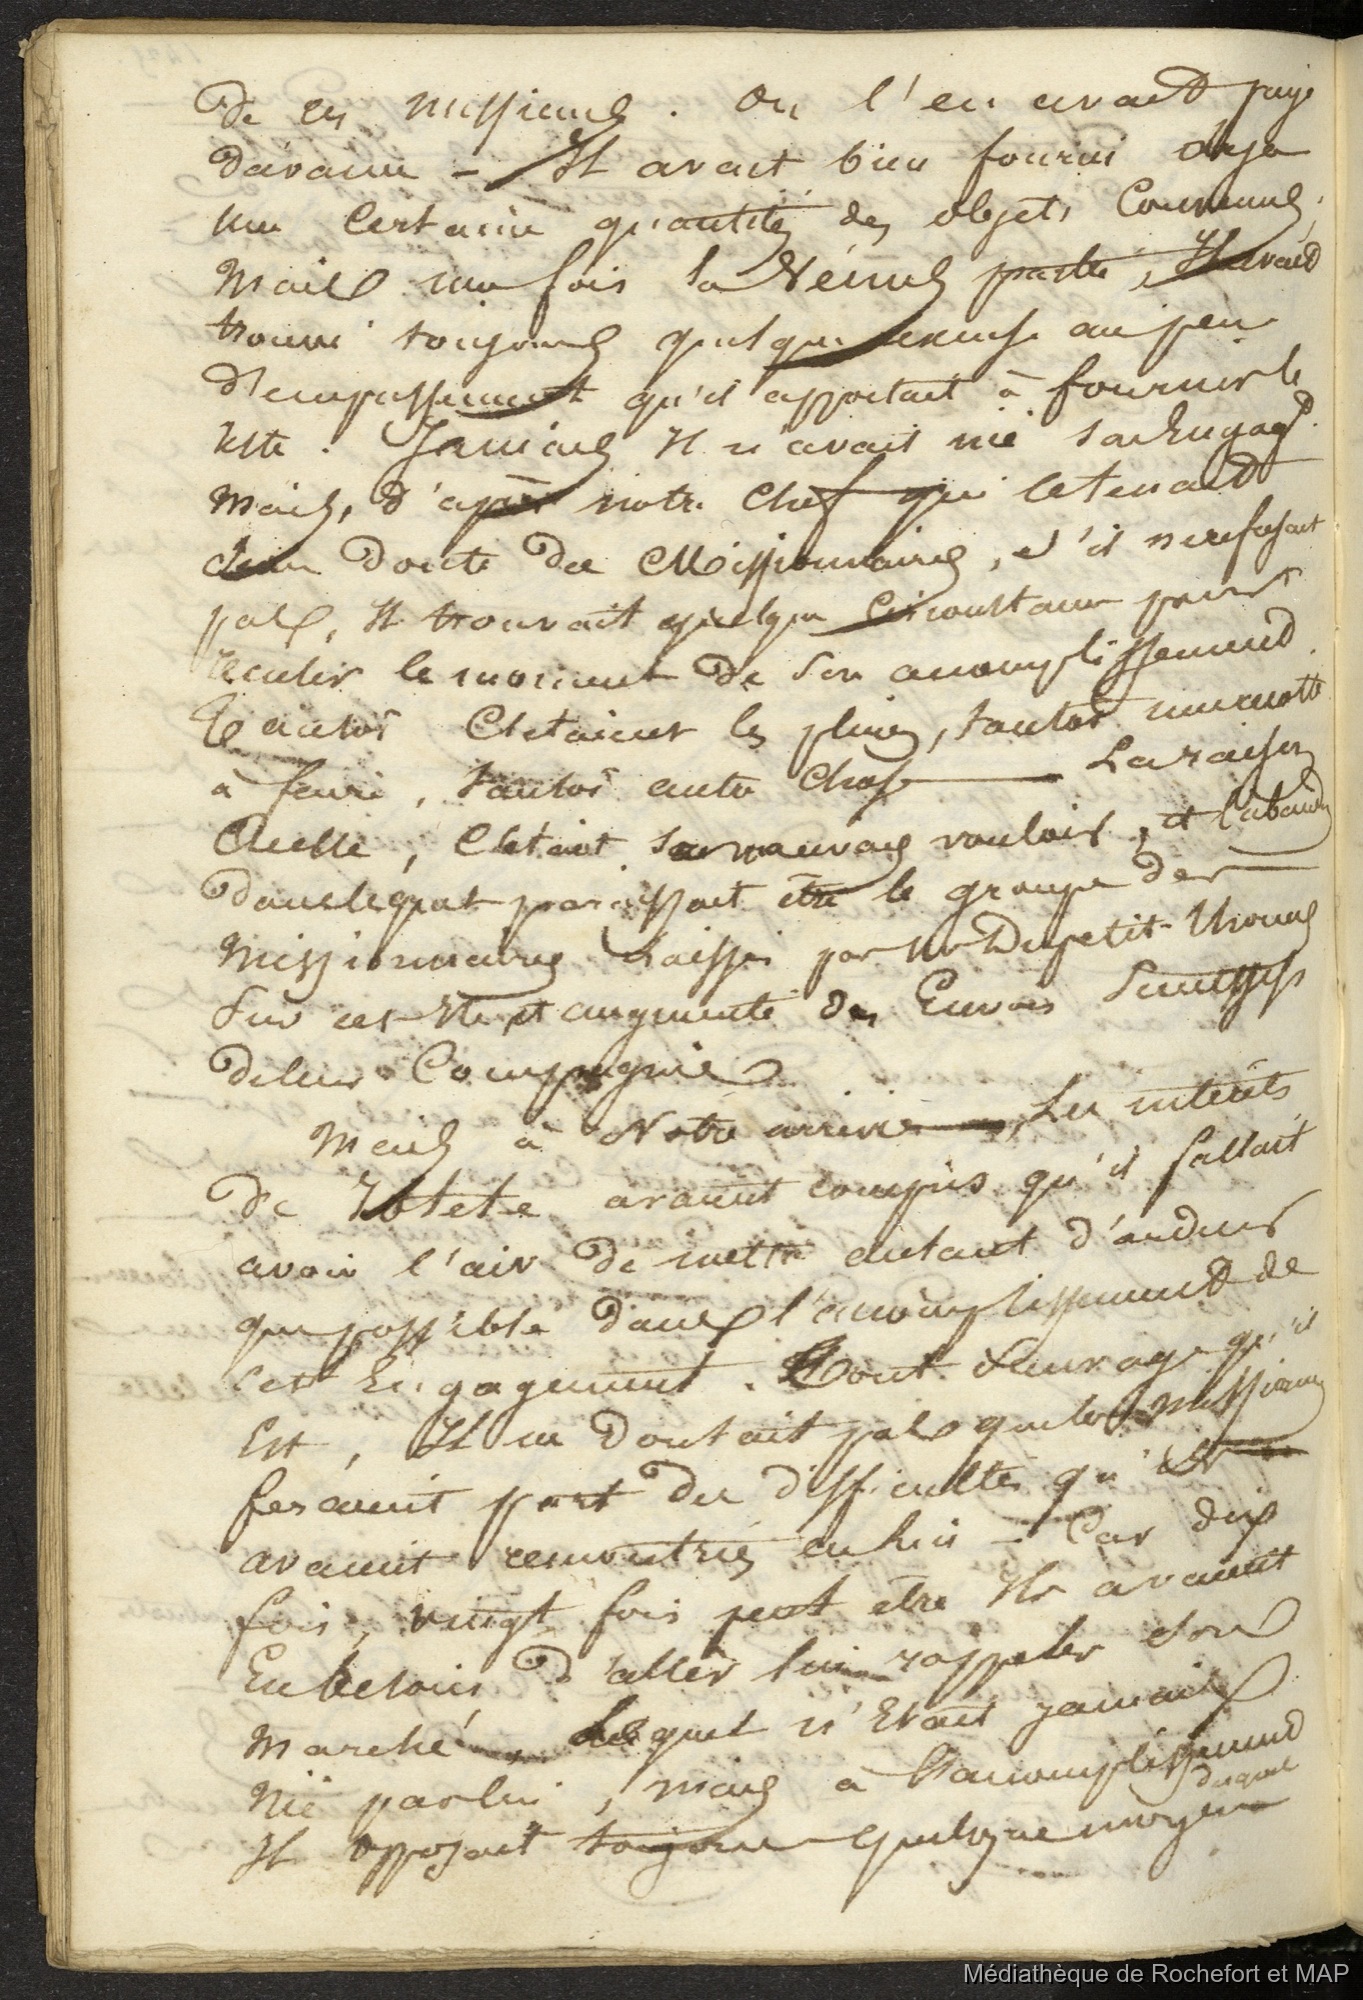 de ces messieurs. On l'en avait payé
d'avance - Il avait bien fourni deja
une certaine quantité des objets Convenus,
Mais une fois la Vénus partie, Il avait
trouvé toujours quelque excuse au peu
d'empressement qu'il apportait à fournir le
reste. Jamais Il n'avait nié son Engagt.
Mais, d'après notre Chef qui le tenait
sans doute des Missionnaires, s'il ne refusait
pas, Il trouvait quelque Circonstance pour
reculer le moment de son accomplissement.
Tantôt C'etaient les pluies, tantôt une
à faire, tantôt autre Chose La raison
réelle, C'était son mauvais vouloir, et l'abandon
dans lequel paraissait être le groupe des
Missionnaires Laissés par Mr Dupetit-Thouars
Sur cet Ile et augmenté des Envois
de leur Compagnie
Mais à Notre arrivée, Les intérêts
de Iotete avaient compris qu'il fallait
avoir l'air de mettre autant d'ardeur
que possible dans l'accomplissement de
cet Engagement. Tout Sauvage qu'il
Est, Il ne doutait pas que les Missionn
feraient part des difficultés qu'ils
avaient rencontrées en lui - Car dix
fois, vingt fois peut être Ils avaient
Eu besoin d'aller lui rappeler son
Marché, Lequel n'Etait jamais
Nié par lui, mais à l'accomplissement
duquel
Il opposait toujours quelque moyen